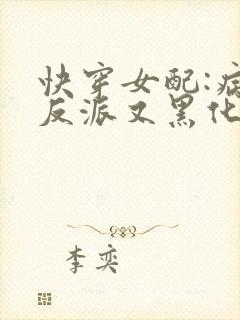 快穿女配:病
反派又黑化
李奕